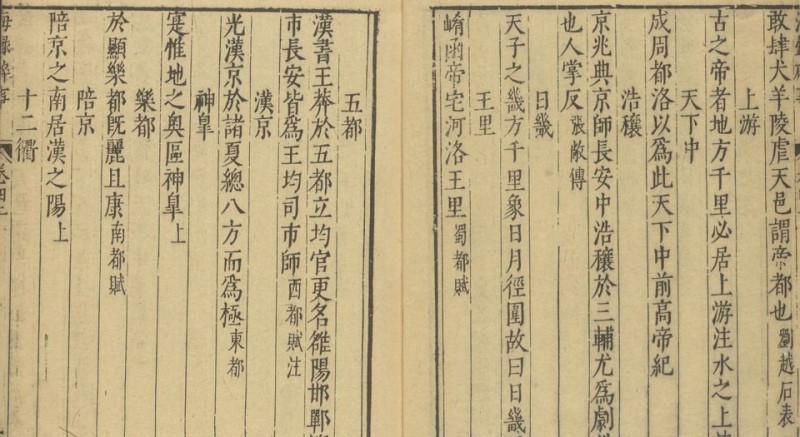 敢肆犬羊陵虐天邑謂帝都也劉越石表
上游
古之帝者地方千里必居上游注水之上
天下中
成周都洛以為此天下中前高帝紀
浩穰
京兆典京師長安中浩穰於三輔尤為劇
也人掌反張敞傳
日畿
天子之畿方千里象日月徑圍故曰日畿
王里
崤函帝宅河洛王里蜀都賦
五都
漢書王莽於五都立均官更名雒陽邯鄲
市長安皆為王均司市師西都賦注
漢京
光漢京於諸夏總八方而為極東都
神臯
寔惟地之奥區神臯上
樂都
於顯樂都旣麗且康南都賦
陪京
陪京之南居漢之陽上
十二衢
海録碎事
卷四上